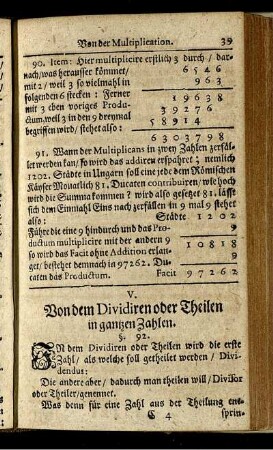 Von der Multiplication. 39
90. Item: Hier multiplicire erstlich 3 durch/ dar-
nach/was herausser kömmet/ 6 5 4 6
mit 2/ weil 3 so vielmahl in 9 6 3
folgenden 6 stecken: Ferner
mit 3 eben voriges Produ- 1 9 6 3 8
ctum, weil 3 in den 9 dreymal 3 9 2 7 6
begriffen wird/ stehet also: 5 8 9 1 4
6 3 0 3 7 9 8
91. Wann der Multiplicans in zwey Zahlen zerfäl-
let werden kan/ so wird das addiren ersparet; nemlich
1202. Städte in Ungarn soll eine jede dem Römischen
Käyser Monatlich 81. Ducaten contribuiren/ wie hoch
wird die Summa kommen? wird also gesetzet 81. lässt
sich dem Einmahl Eins nach zerfällen in 9 mal 9 stehet
also: Städte 1 2 0 2
Führe die eine 9 hindurch und das Pro- 9
ductum multiplicire mit der andern 9 1 0 8 1 8
so wird das Facit ohne Addition erlan- 9
get/ bestehet demnach in 97262. Du-
caten das Productum. Facit 9 7 2 6 2
V.
Von dem Dividiren oder Theilen
in gantzen Zahlen.
§. 92.
IN dem Dividiren oder Theilen wird die erste
Zahl/ als welche soll getheilet werden/ Divi-
dendus:
Die andere aber/ dadurch man theilen will/ Divisor
oder Theiler/ genennet.
Was denn für eine Zahl aus der Theilung ent-
C 4 sprin-